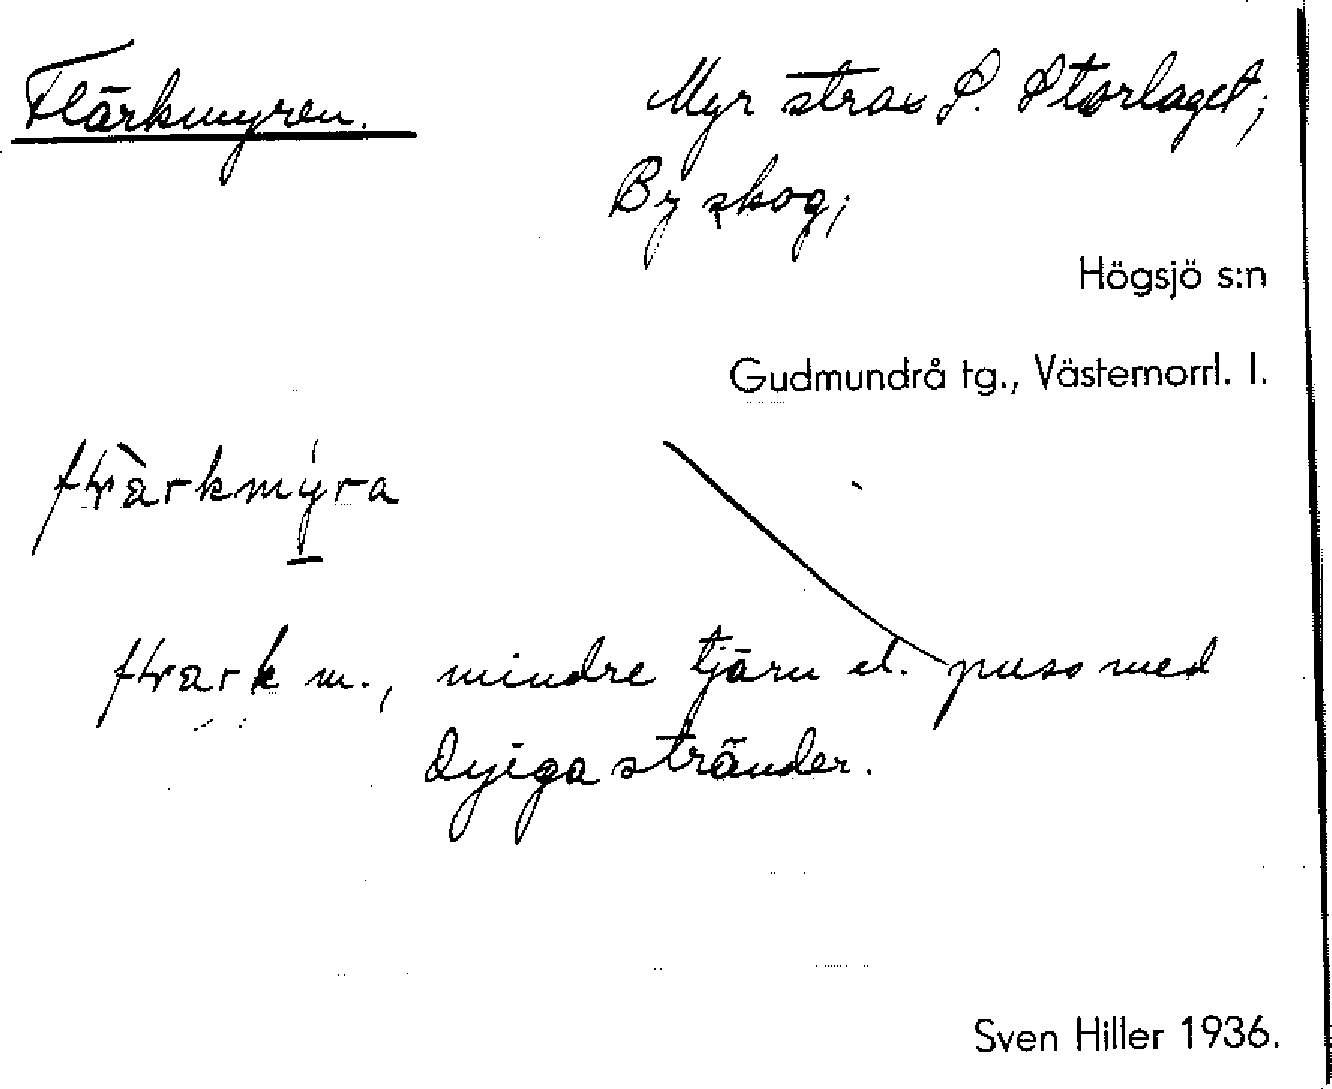 Flärkmyren.
Myr strax S. Storlaget;
By skog;
Högsjö s:n
Gudmundrå tg., Västernorrl. l.
mindre tjärn el. puss med
dyiga stränder.
Sven Hiller 1936.